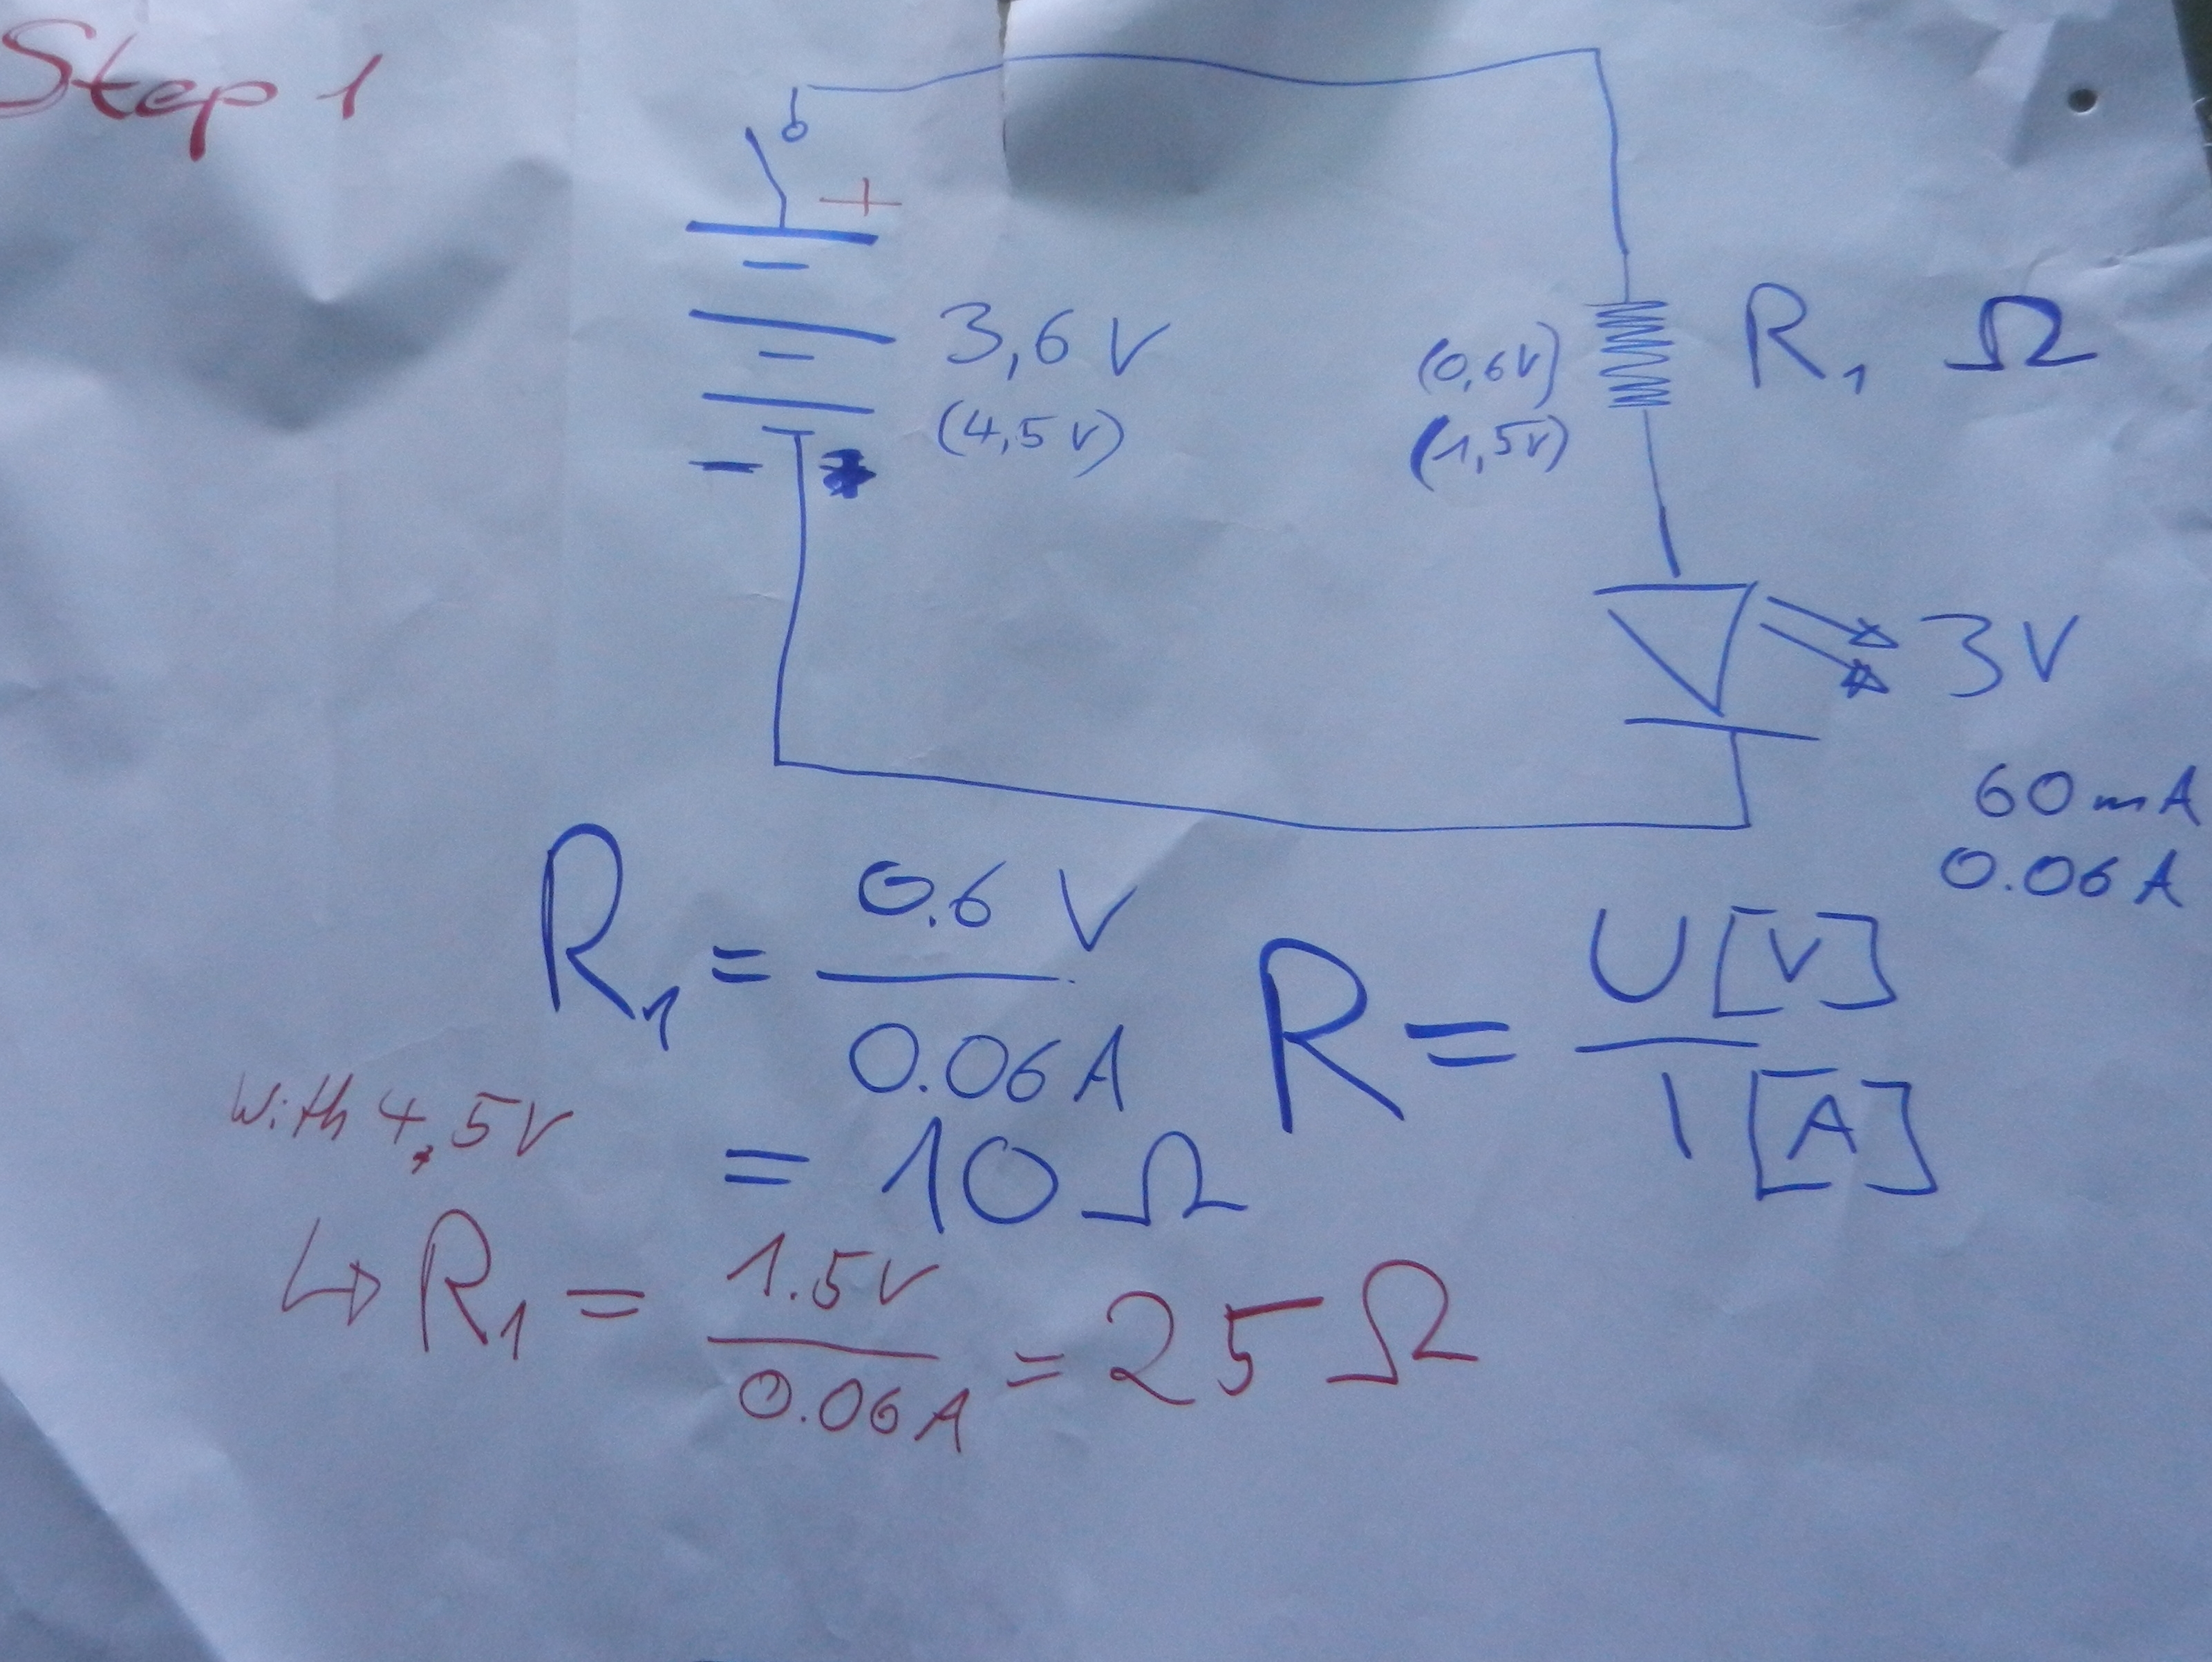 Step 1
+
3,6 V
(4,5 V)
-
(0,6V)
(1,5V)
R1 Ω
3V
60mA
0.06A
R1 = 0.6 V / 0.06A
= 10 Ω
R = U[V] / I[A]
With 4,5V
↳ R1 = 1.5V / 0.06A = 25 Ω